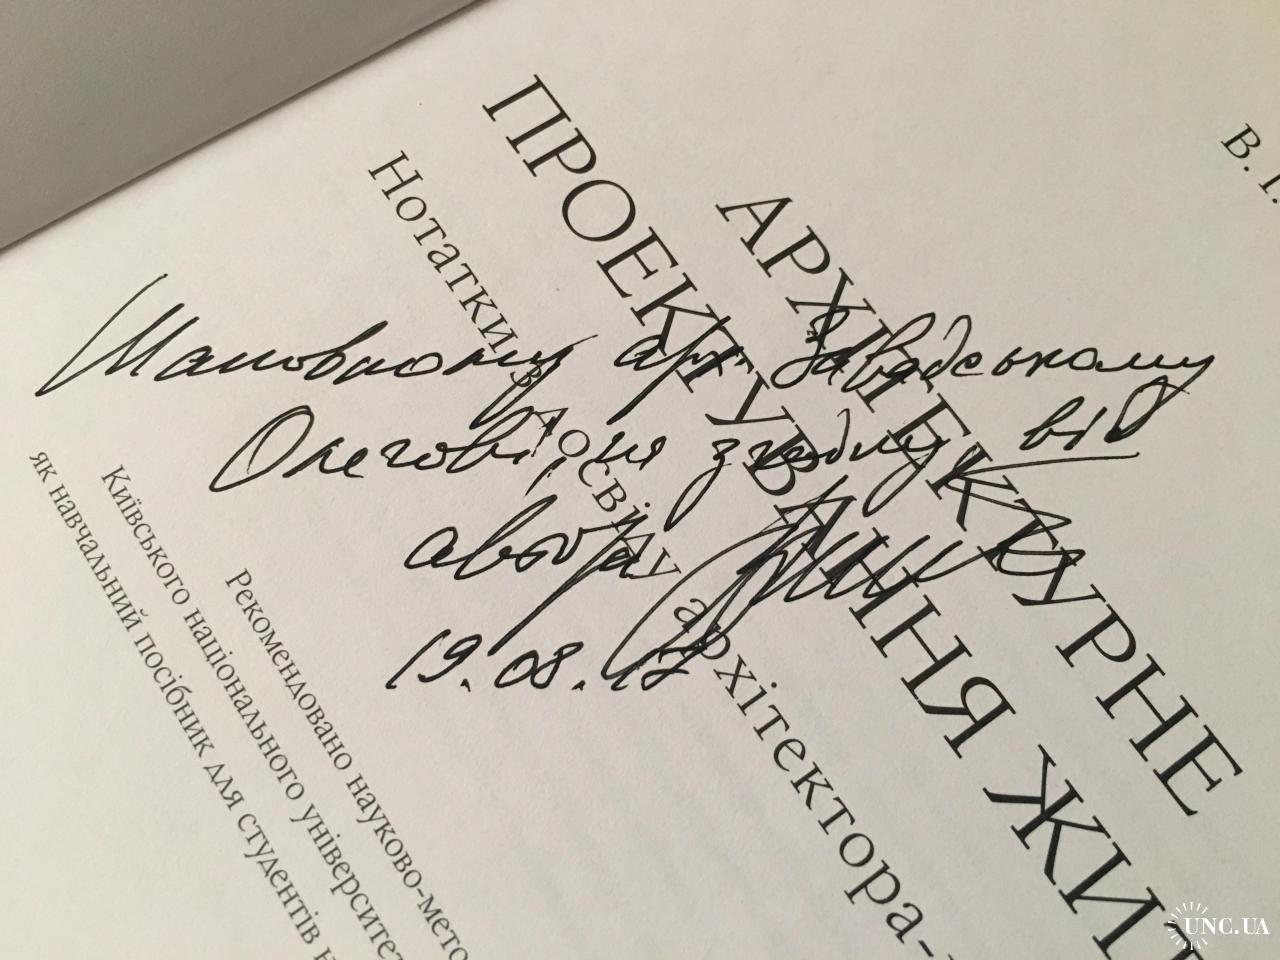 В. І.
АРХІТЕКТУРНЕ
ПРОЕКТУВАННЯ ЖИТ
Нотатки з досвіду архітектора-
Рекомендовано науково-мето
Київського національного університе
як навчальний посібник для студентів
Шановному арх Завадському
Олегові, на згадку від
автора
19.08.18
UNC.UA